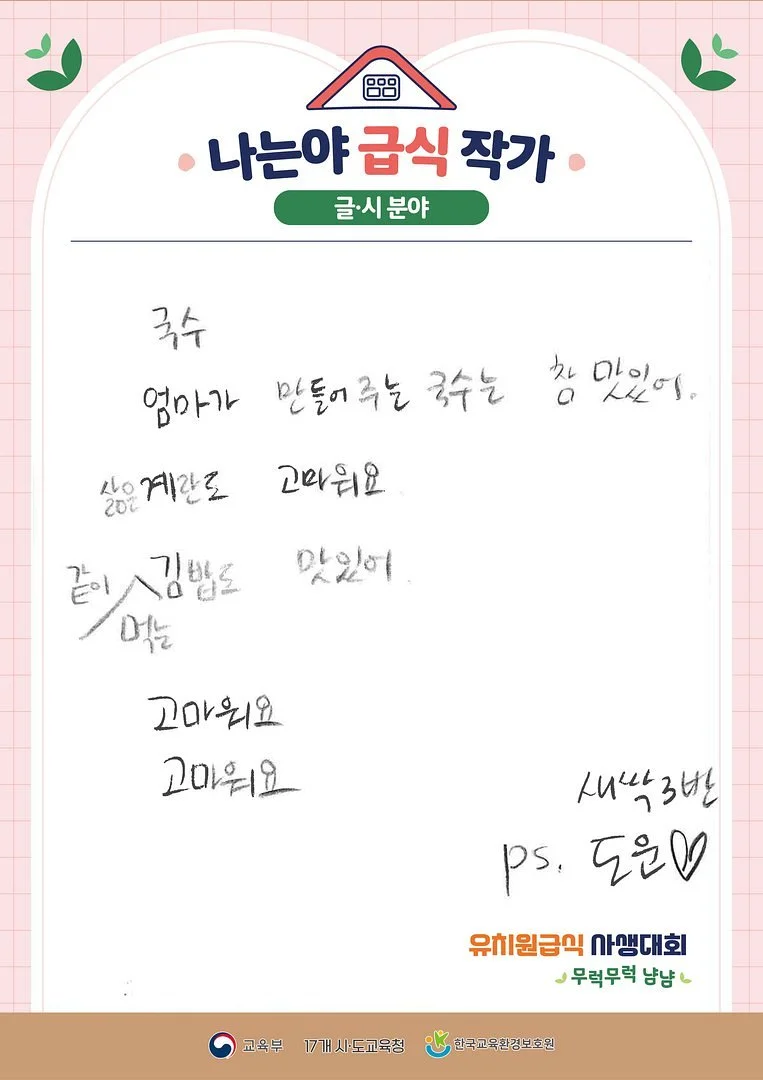 나는야 급식 작가
글·시 분야
국수
엄마가 만들어 주는 국수는 참 맛있어.
삶은 계란도 고마워요.
같이 먹는 김밥도 맛있어.
고마워요
고마워요
새싹3반
ps. 도운♡
유치원급식 사생대회
무럭무럭 냠냠
교육부 17개 시·도교육청 한국교육환경보호원